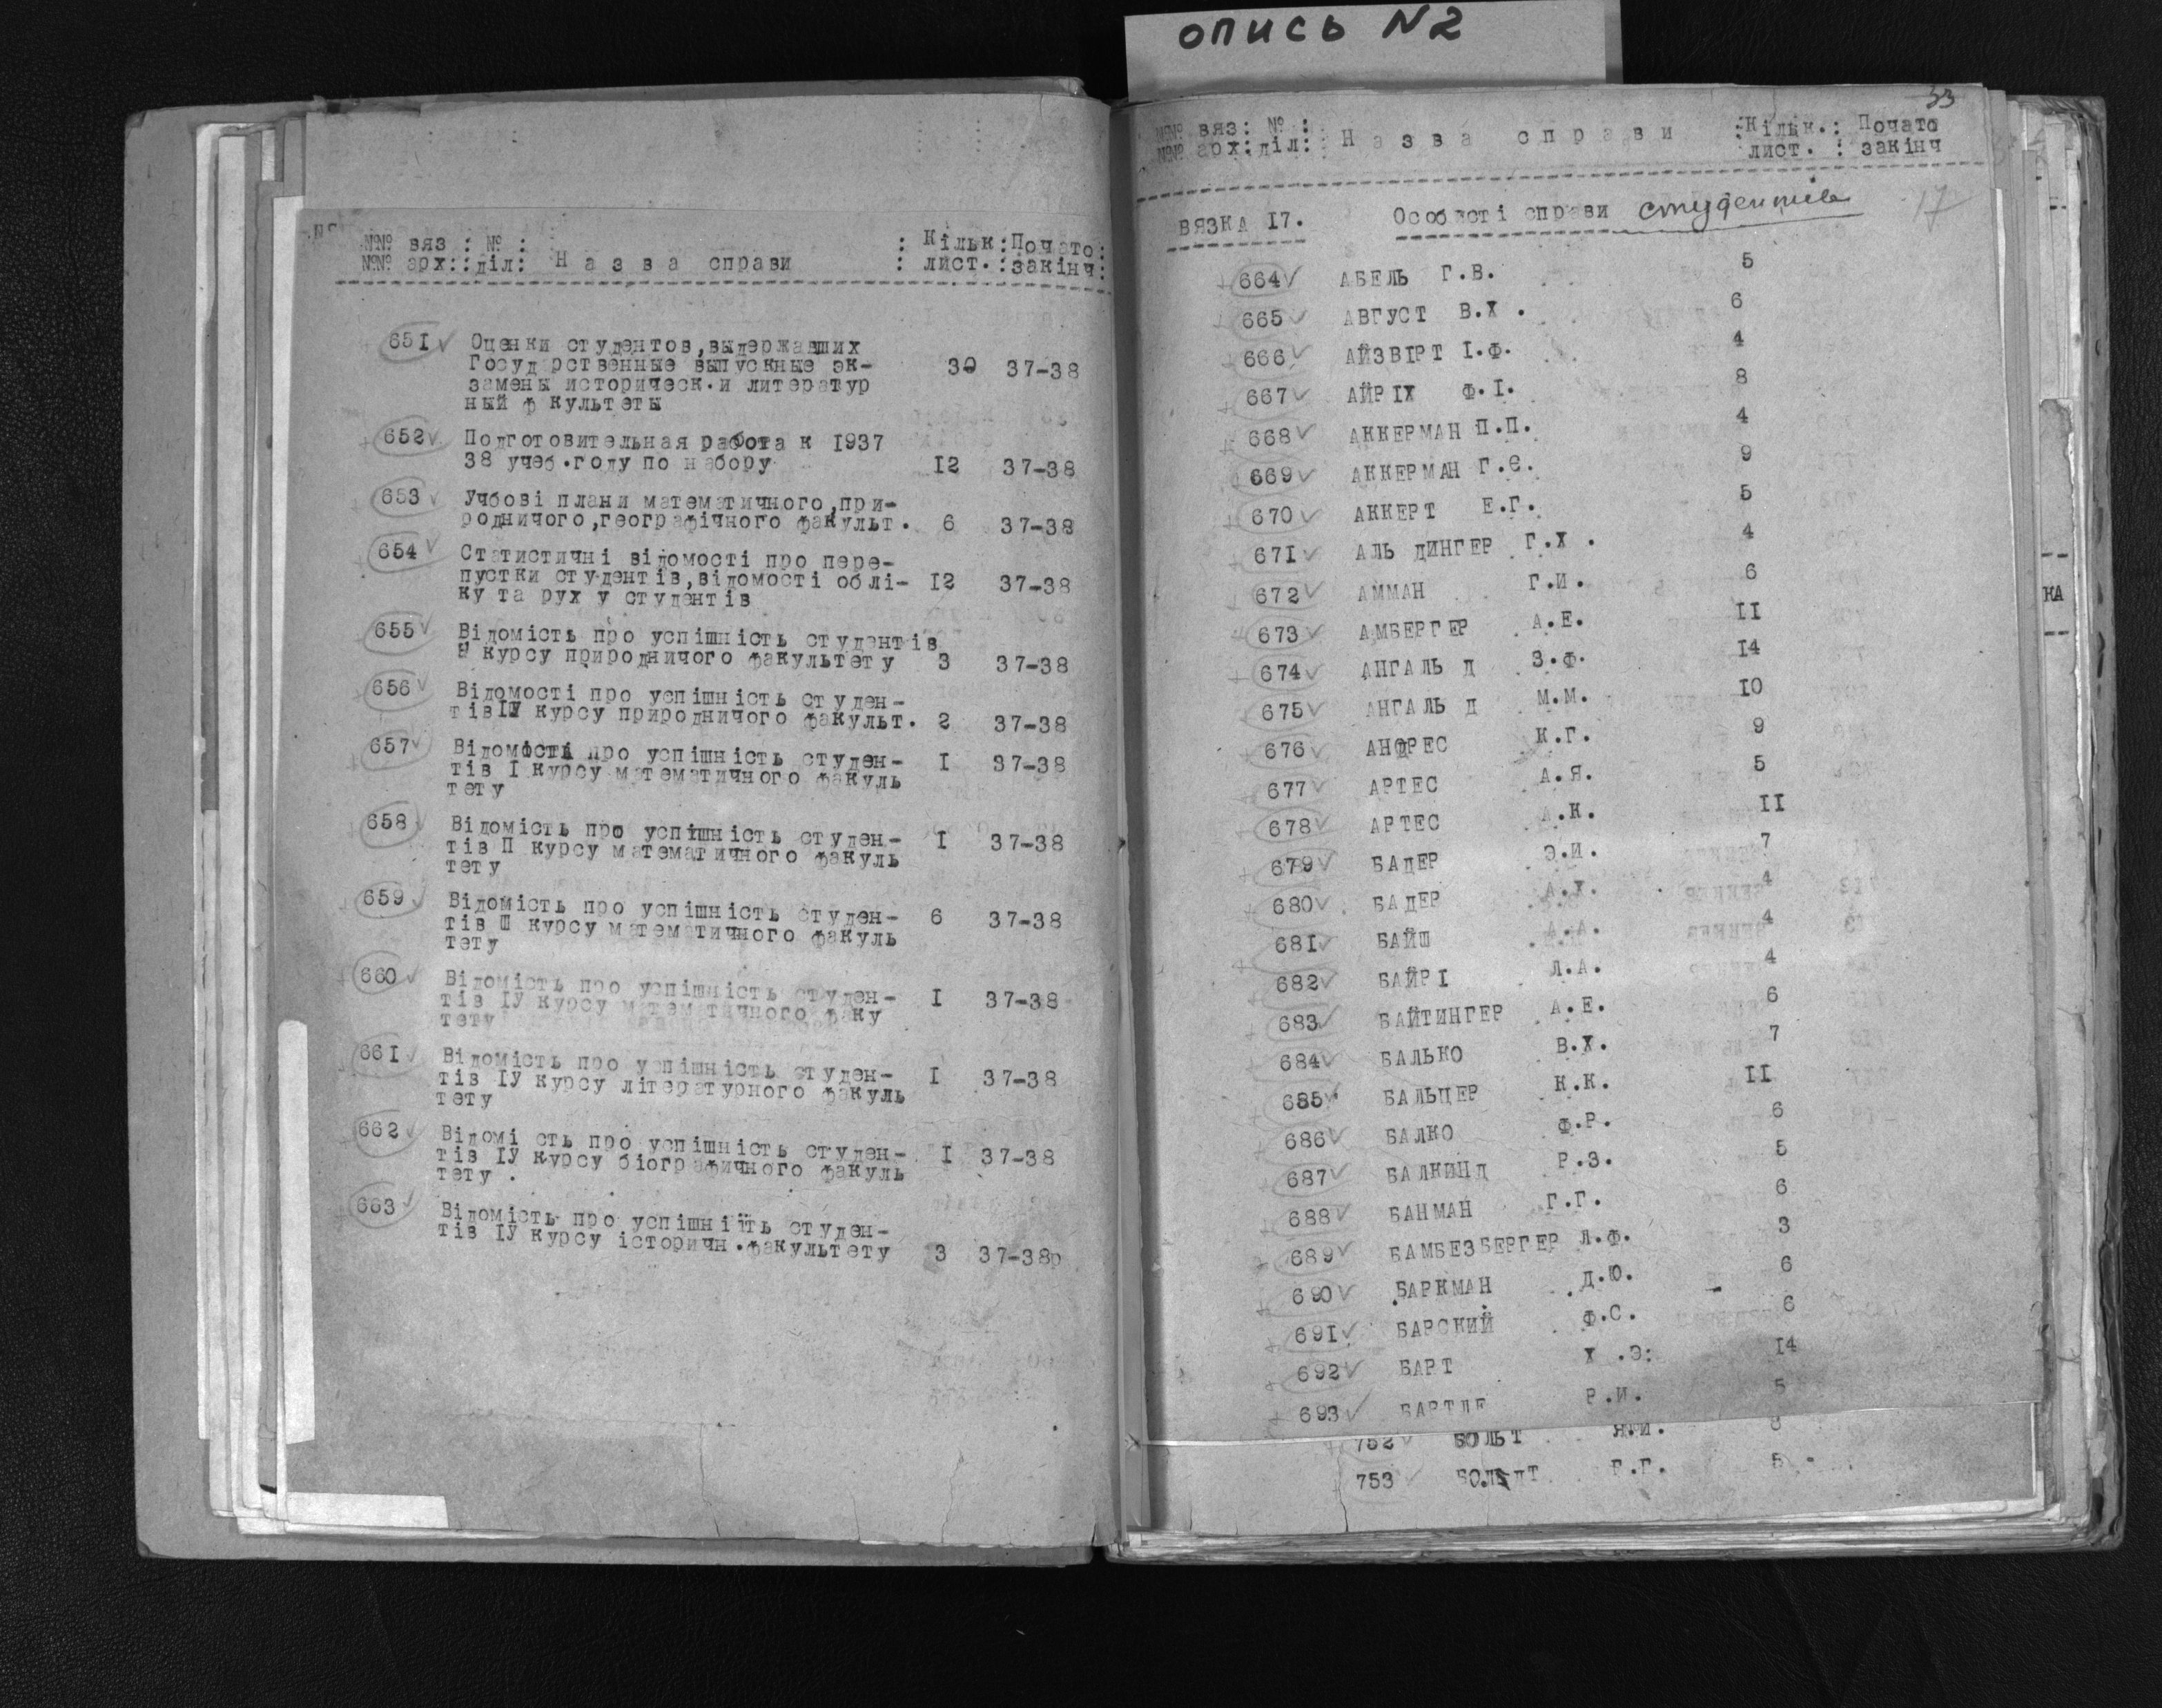 опись N2
№№ вяз : № :
: Кільк:Почато:
№№ арх: :діл: Н а з в а справи
: лист. :закінч:
651 Оценки студентов,выдержавших
Государственные выпускные эк-
30 37-38
замены историческ.и литератур
ный ф культеты
652 Подготовительная работа к I937
38 учеб.году по набору I2 37-38
653 Учбові плани математичного,при-
родничого,географічного факульт. 6 37-38
654 Статистичні відомості про пере-
пустки студентів,відомості облі- I2 37-38
ку та рух у студентів
655 Відомість про успішність студентів
курсу природничого факультету 3 37-38
656 Відомості про успішність студен-
тів курсу природничого факульт. 2 37-38
657 Відомості про успішність студен- I 37-38
тів I курсу математичного факуль
тету
658 Відомість про успішність студен- I 37-38
тів П курсу математичного факуль
тету
659 Відомість про успішність студен- 6 37-38
тів Ш курсу математичного факуль
тету
660 Відомість про успішність студен- I 37-38
тів IУ курсу математичного факу
тету
66I Відомість про успішність студен- I 37-38
тів IУ курсу літературного факуль
тету
662 Відомі сть про успішність студен-
тів IУ курсу біографичного факуль I 37-38
тету .
663 Відомість про успішніїть студен-
тів IУ курсу історичн.факультету 3 37-38р
33
№№ вяз: № :
№№ арх: діл: Н а з в а с п р а в и
:Кільк.: Почато
лист. : закінч
ВЯЗКА I7. Особисті справи студентів 17
664 АБЕЛЬ Г.В. 5
665 АВГУСТ В.Х . 6
666 АЙЗВІРТ І.Ф. 4
667 АЙРІХ Ф.І. 8
668 АККЕРМАН П.П. 4
669 АККЕРМАН Г.Є. 9
670 АККЕРТ Е.Г. 5
67I АЛЬ ДИНГЕР Г.Х . 4
672 АММАН Г.И. 6
673 АМБЕРГЕР А.Е. II
674 АНГАЛЬ Д З.Ф. I4
675 АНГАЛЬ Д М.М. I0
676 АНДРЕС К.Г. 9
677 АРТЕС А.Я. 5
678 АРТЕС А.К. II
679 БАДЕР Э.И. 7
680 БАДЕР А.Х. 4
68I БАЙШ А.А. 4
682 БАЙРІ Л.А. 4
683 БАЙТИНГЕР А.Е. 6
684 БАЛЬКО В.Х. 7
685 БАЛЬЦЕР К.К. II
686 БАЛКО Ф.Р. 6
687 БАЛКИНД Р.З. 5
688 БАНМАН Г.Г. 6
689 БАМБЕЗБЕРГЕР Л.Ф. 3
690 БАРКМАН Д.Ю. 6
69I БАРСКИЙ Ф.С. 6
692 БАРТ Х .Э: I4
693 БАРТЛЕ Р.И. 5
752 БОЛЬТ Я.И. 8
753 Г.Г. 5
КА